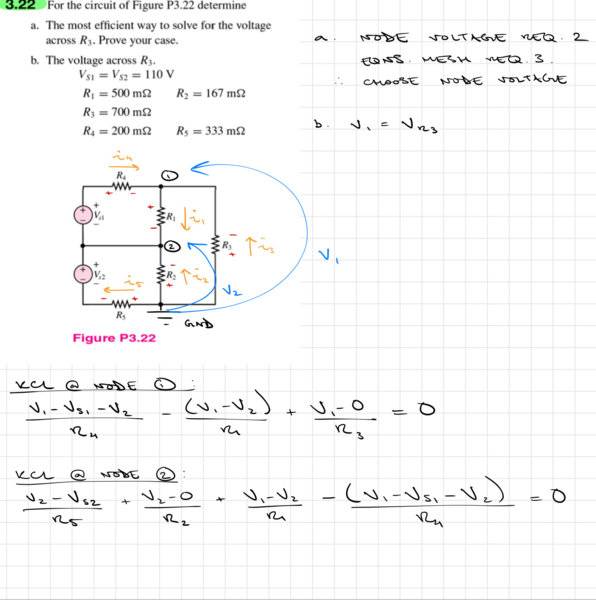 3.22 For the circuit of Figure P3.22 determine
a. The most efficient way to solve for the voltage
across R₃. Prove your case.
b. The voltage across R₃.
V_S1 = V_S2 = 110 V
R₁ = 500 mΩ R₂ = 167 mΩ
R₃ = 700 mΩ
R₄ = 200 mΩ R₅ = 333 mΩ
a. NODE VOLTAGE REQ. 2
EQNS. MESH REQ. 3.
∴ CHOOSE NODE VOLTAGE
b. V₁ = V_R3
i₄
R₄
①
+ −
+
V_s1
−
+
R₁
−
i₁
②
−
R₃
+
i₃
V₁
+
V_s2
−
i₅
−
R₂
+
i₂
V₂
− +
R₅
GND
Figure P3.22
KCL @ NODE ① :
(V₁ - V_S1 - V₂)/R₄ - (V₁ - V₂)/R₁ + (V₁ - 0)/R₃ = 0
KCL @ NODE ② :
(V₂ - V_S2)/R₅ + (V₂ - 0)/R₂ + (V₁ - V₂)/R₁ - (V₁ - V_S1 - V₂)/R₄ = 0